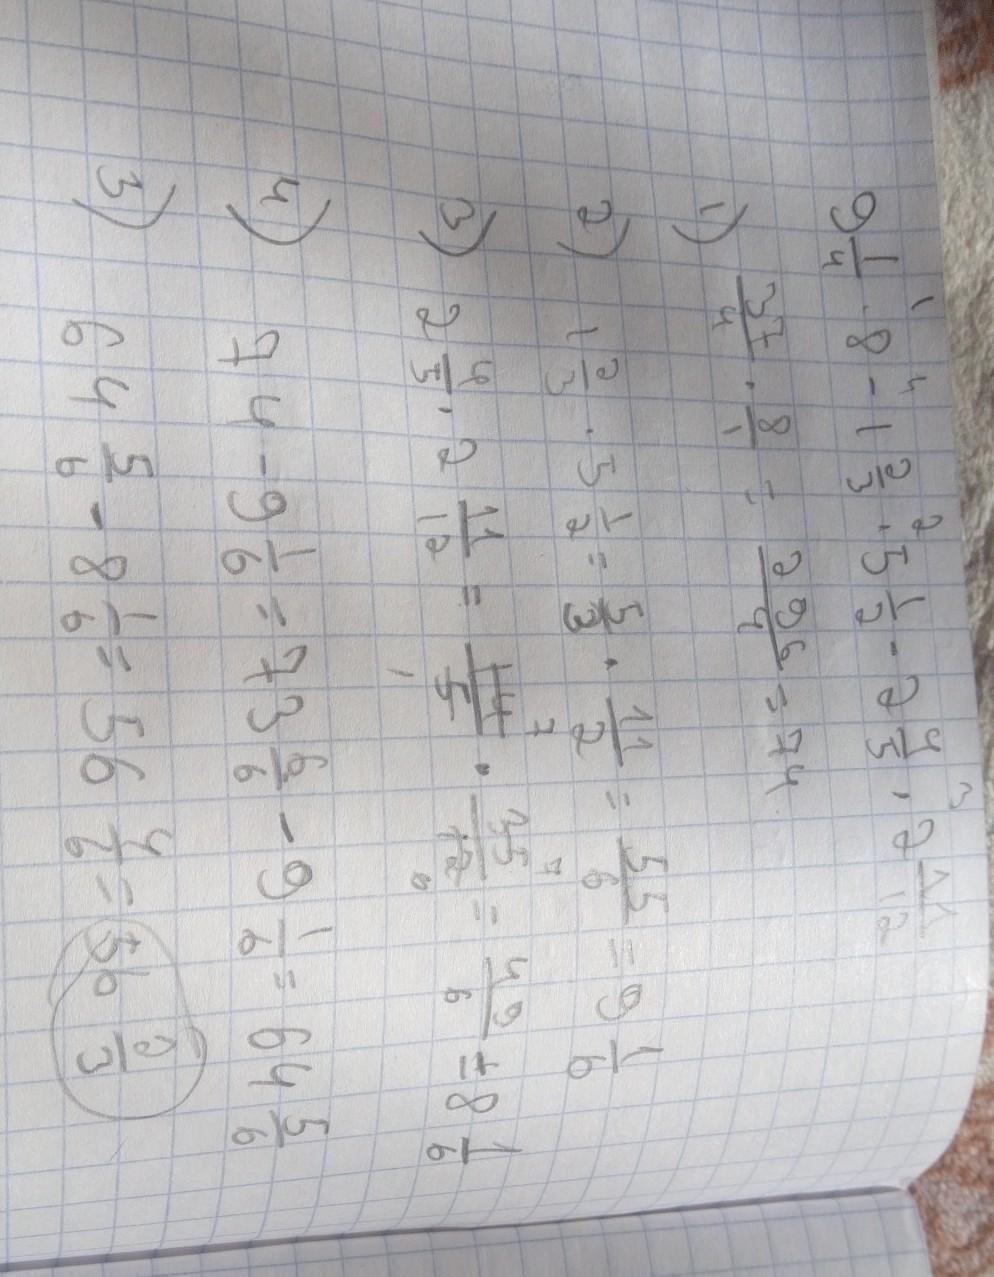 9 1/4 · 8 - 1 2/3 · 5 1/2 - 2 4/5 · 2 11/12
1) 37/4 · 8/1 = 296/4 = 74
2) 1 2/3 · 5 1/2 = 5/3 · 11/2 = 55/6 = 9 1/6
3) 2 4/5 · 2 11/12 = 14/5 · 35/12 = 49/6 = 8 1/6
4) 74 - 9 1/6 = 73 6/6 - 9 1/6 = 64 5/6
3) 64 5/6 - 8 1/6 = 56 4/6 = 56 2/3